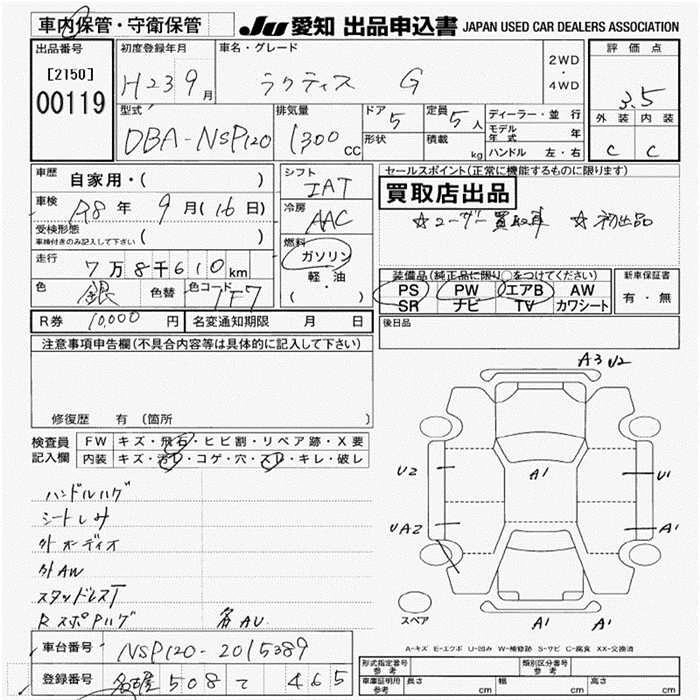 車内保管・守衛保管
JU 愛知 出品申込書 JAPAN USED CAR DEALERS ASSOCIATION
出品番号 初度登録年月 車名・グレード 2WD・4WD 評価点
[2150]
00119
H23 9月 ラクティス G 3.5
型式 排気量 ドア 5 定員 5人 ディーラー・並行 外装 内装
DBA-NSP120 1300cc 形状 積載 kg モデル年式 年 C C
ハンドル 左・右
車歴 自家用・( ) シフト IAT セールスポイント(正常に機能するものに限ります)
車検 R8年 9月(16日) 冷房 AAC 買取店出品
受検形態 車検付きのみ記入して下さい ( ) ☆ユーザー買取車 ☆初出品
走行 7万8千610km 燃料 ガソリン・軽・油 ( )
装備品(純正品に限り○をつけてください) 新車保証書
PS PW エアB AW 有・無
SR ナビ TV カワシート
色 銀 色替 色コード 1F7
後日品
R券 10,000円 名変通知期限 月 日
注意事項申告欄(不具合内容等は具体的に記入して下さい)
修復歴 有 (箇所
検査員記入欄 FW キズ・飛石・ヒビ割・リペア跡・X要
内装 キズ・汚レ・コゲ・穴・スレ・キレ・破レ
A3 U2
A1
U2 U1
UA2 A1
A1 A1
スペア
ハンドルハゲ
シートしみ
外オーディオ
外AW
スタッドレスT
RスポPハゲ
各AU
A-キズ E-エクボ U-凹み W-補修跡 S-サビ C-腐食 XX-交換済
車台番号 NSP120-2015389
登録番号 名古屋 508 て 465
型式指定番号 参考 類別区分番号 参考
車庫証明用 参考 長さ cm 幅 cm 高さ cm